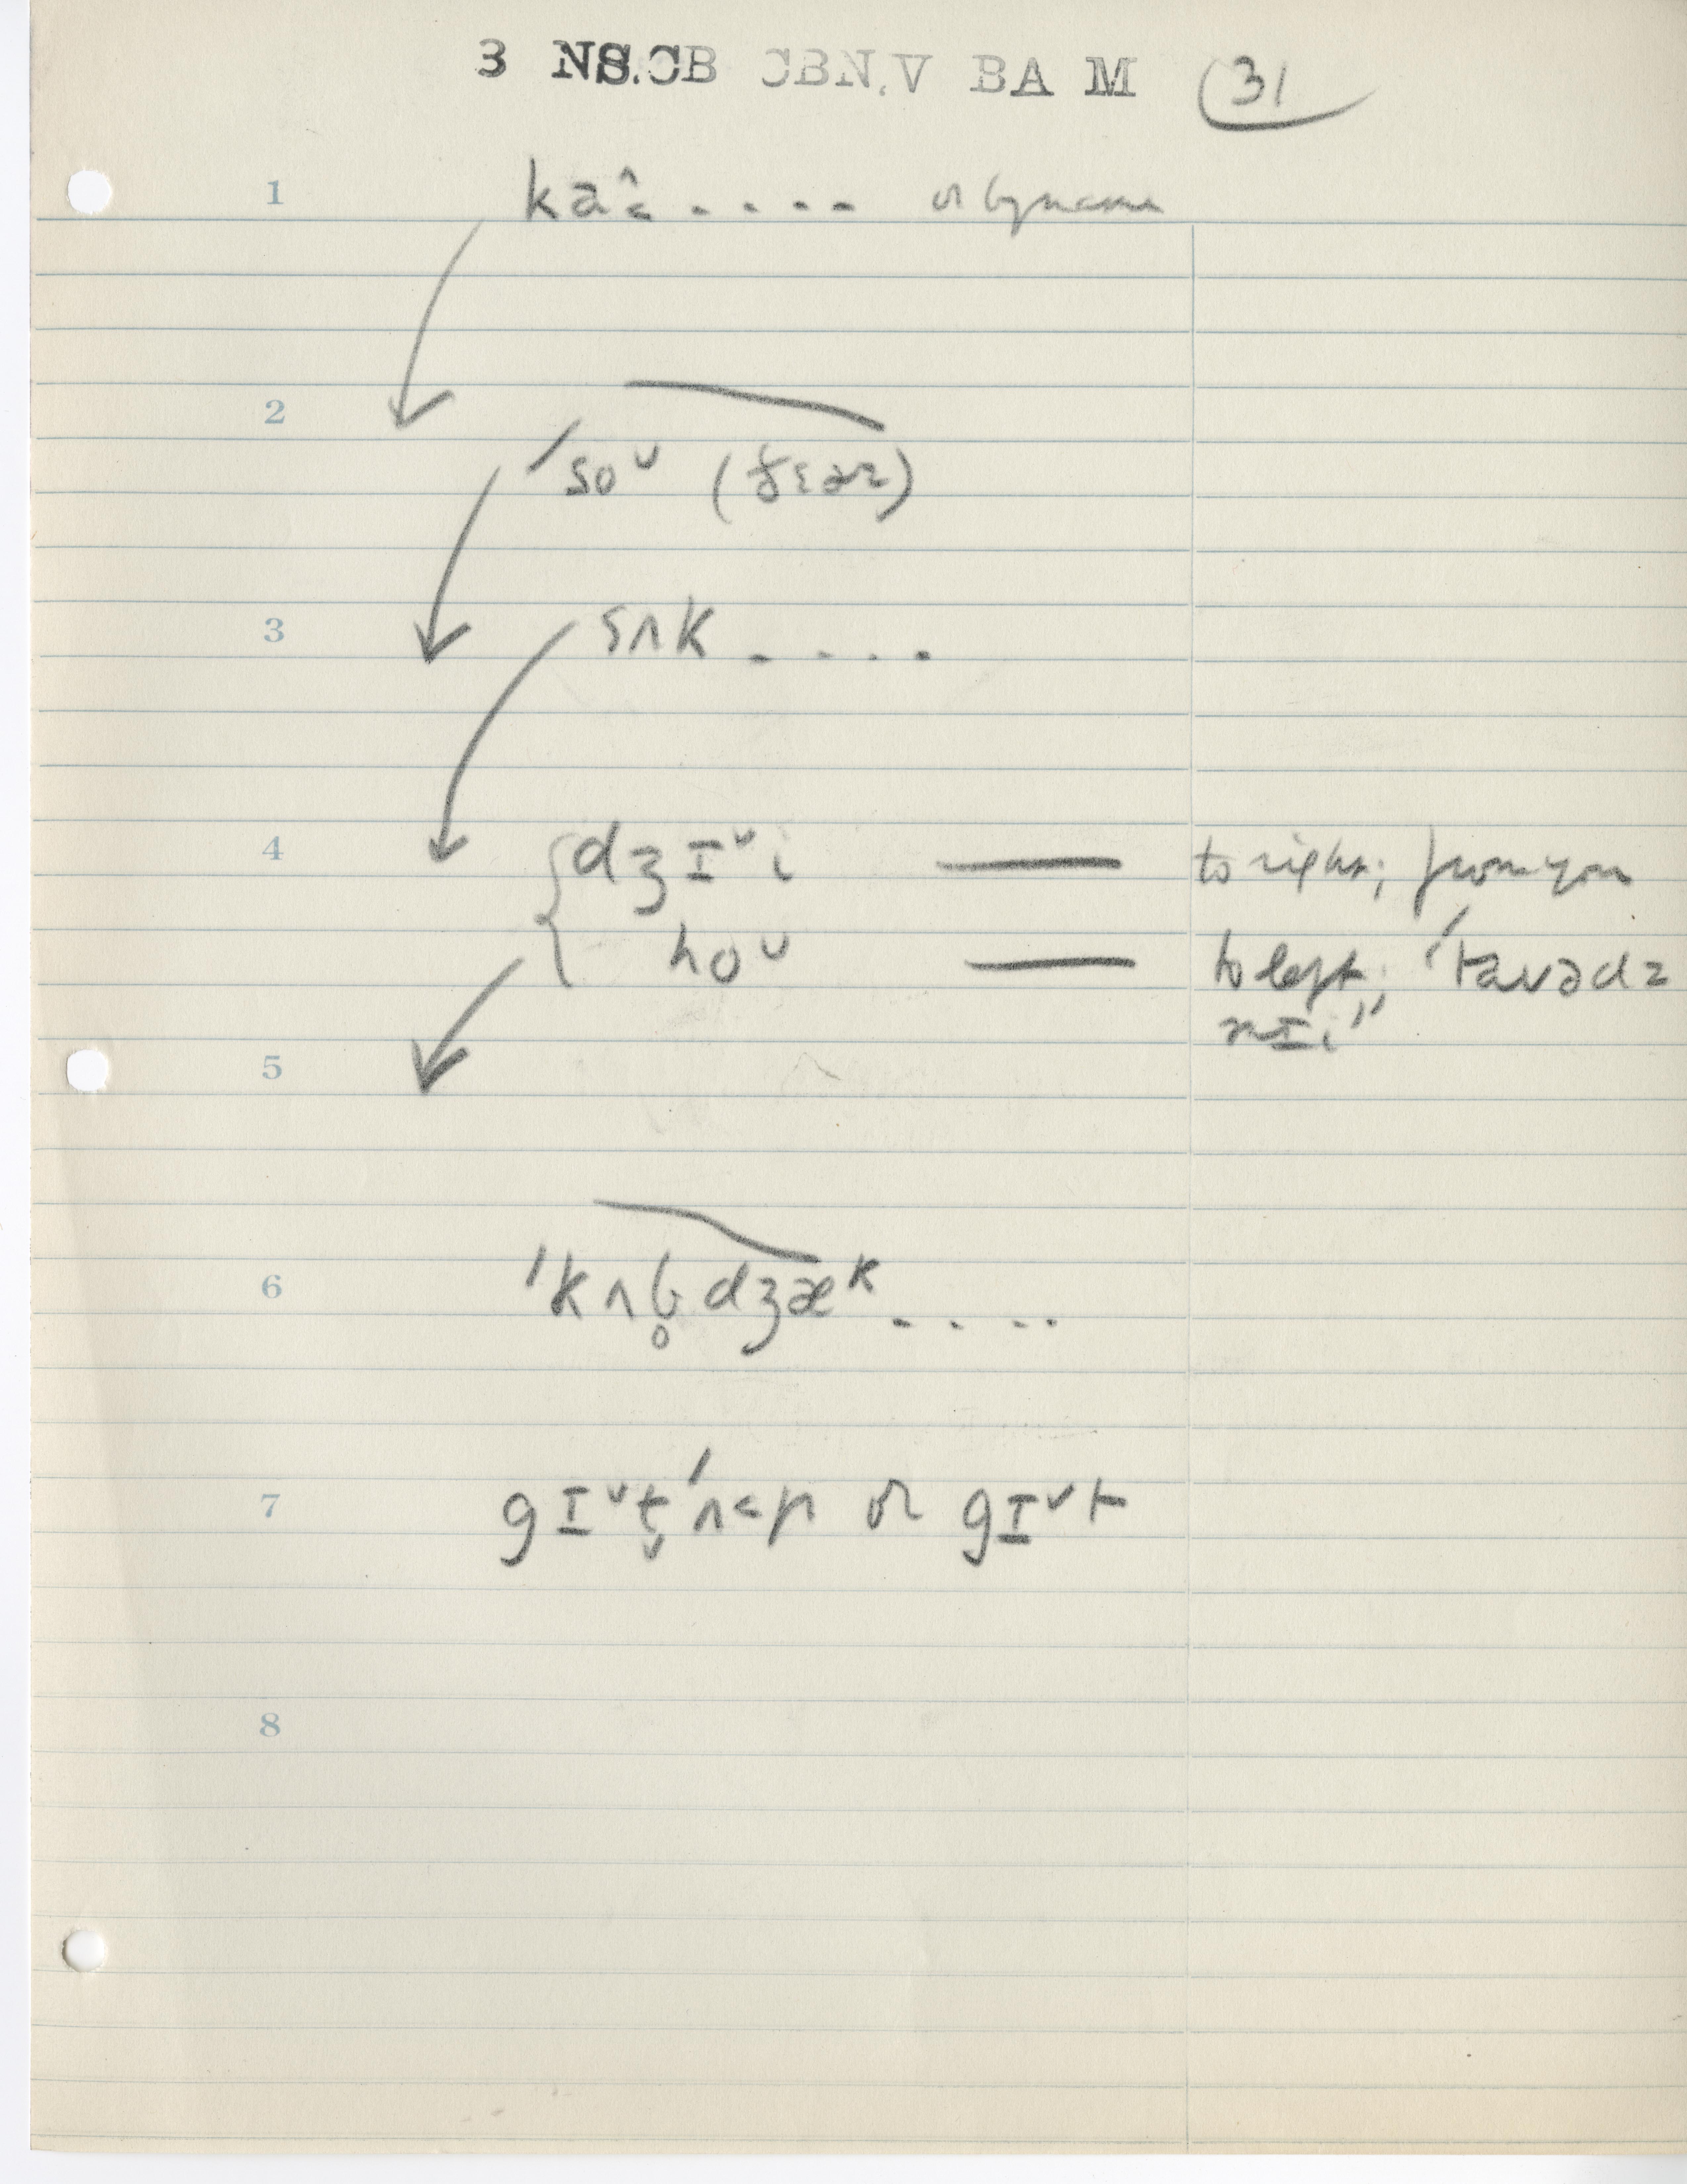 3 NS.CB CBN.V BA M 31
1 ka^: . . . . or by name
2 'soᵛ (ðɛɚ)
3 sʌk . . . .
4 dʒɪᵛi — to right; from you
hoᵛ — to left; "tawəd
nɪi"
5
6 'kʌb̥dʒæᴷ . . . .
7 gɪᵛt̬'ʌ<p or gɪᵛt
8